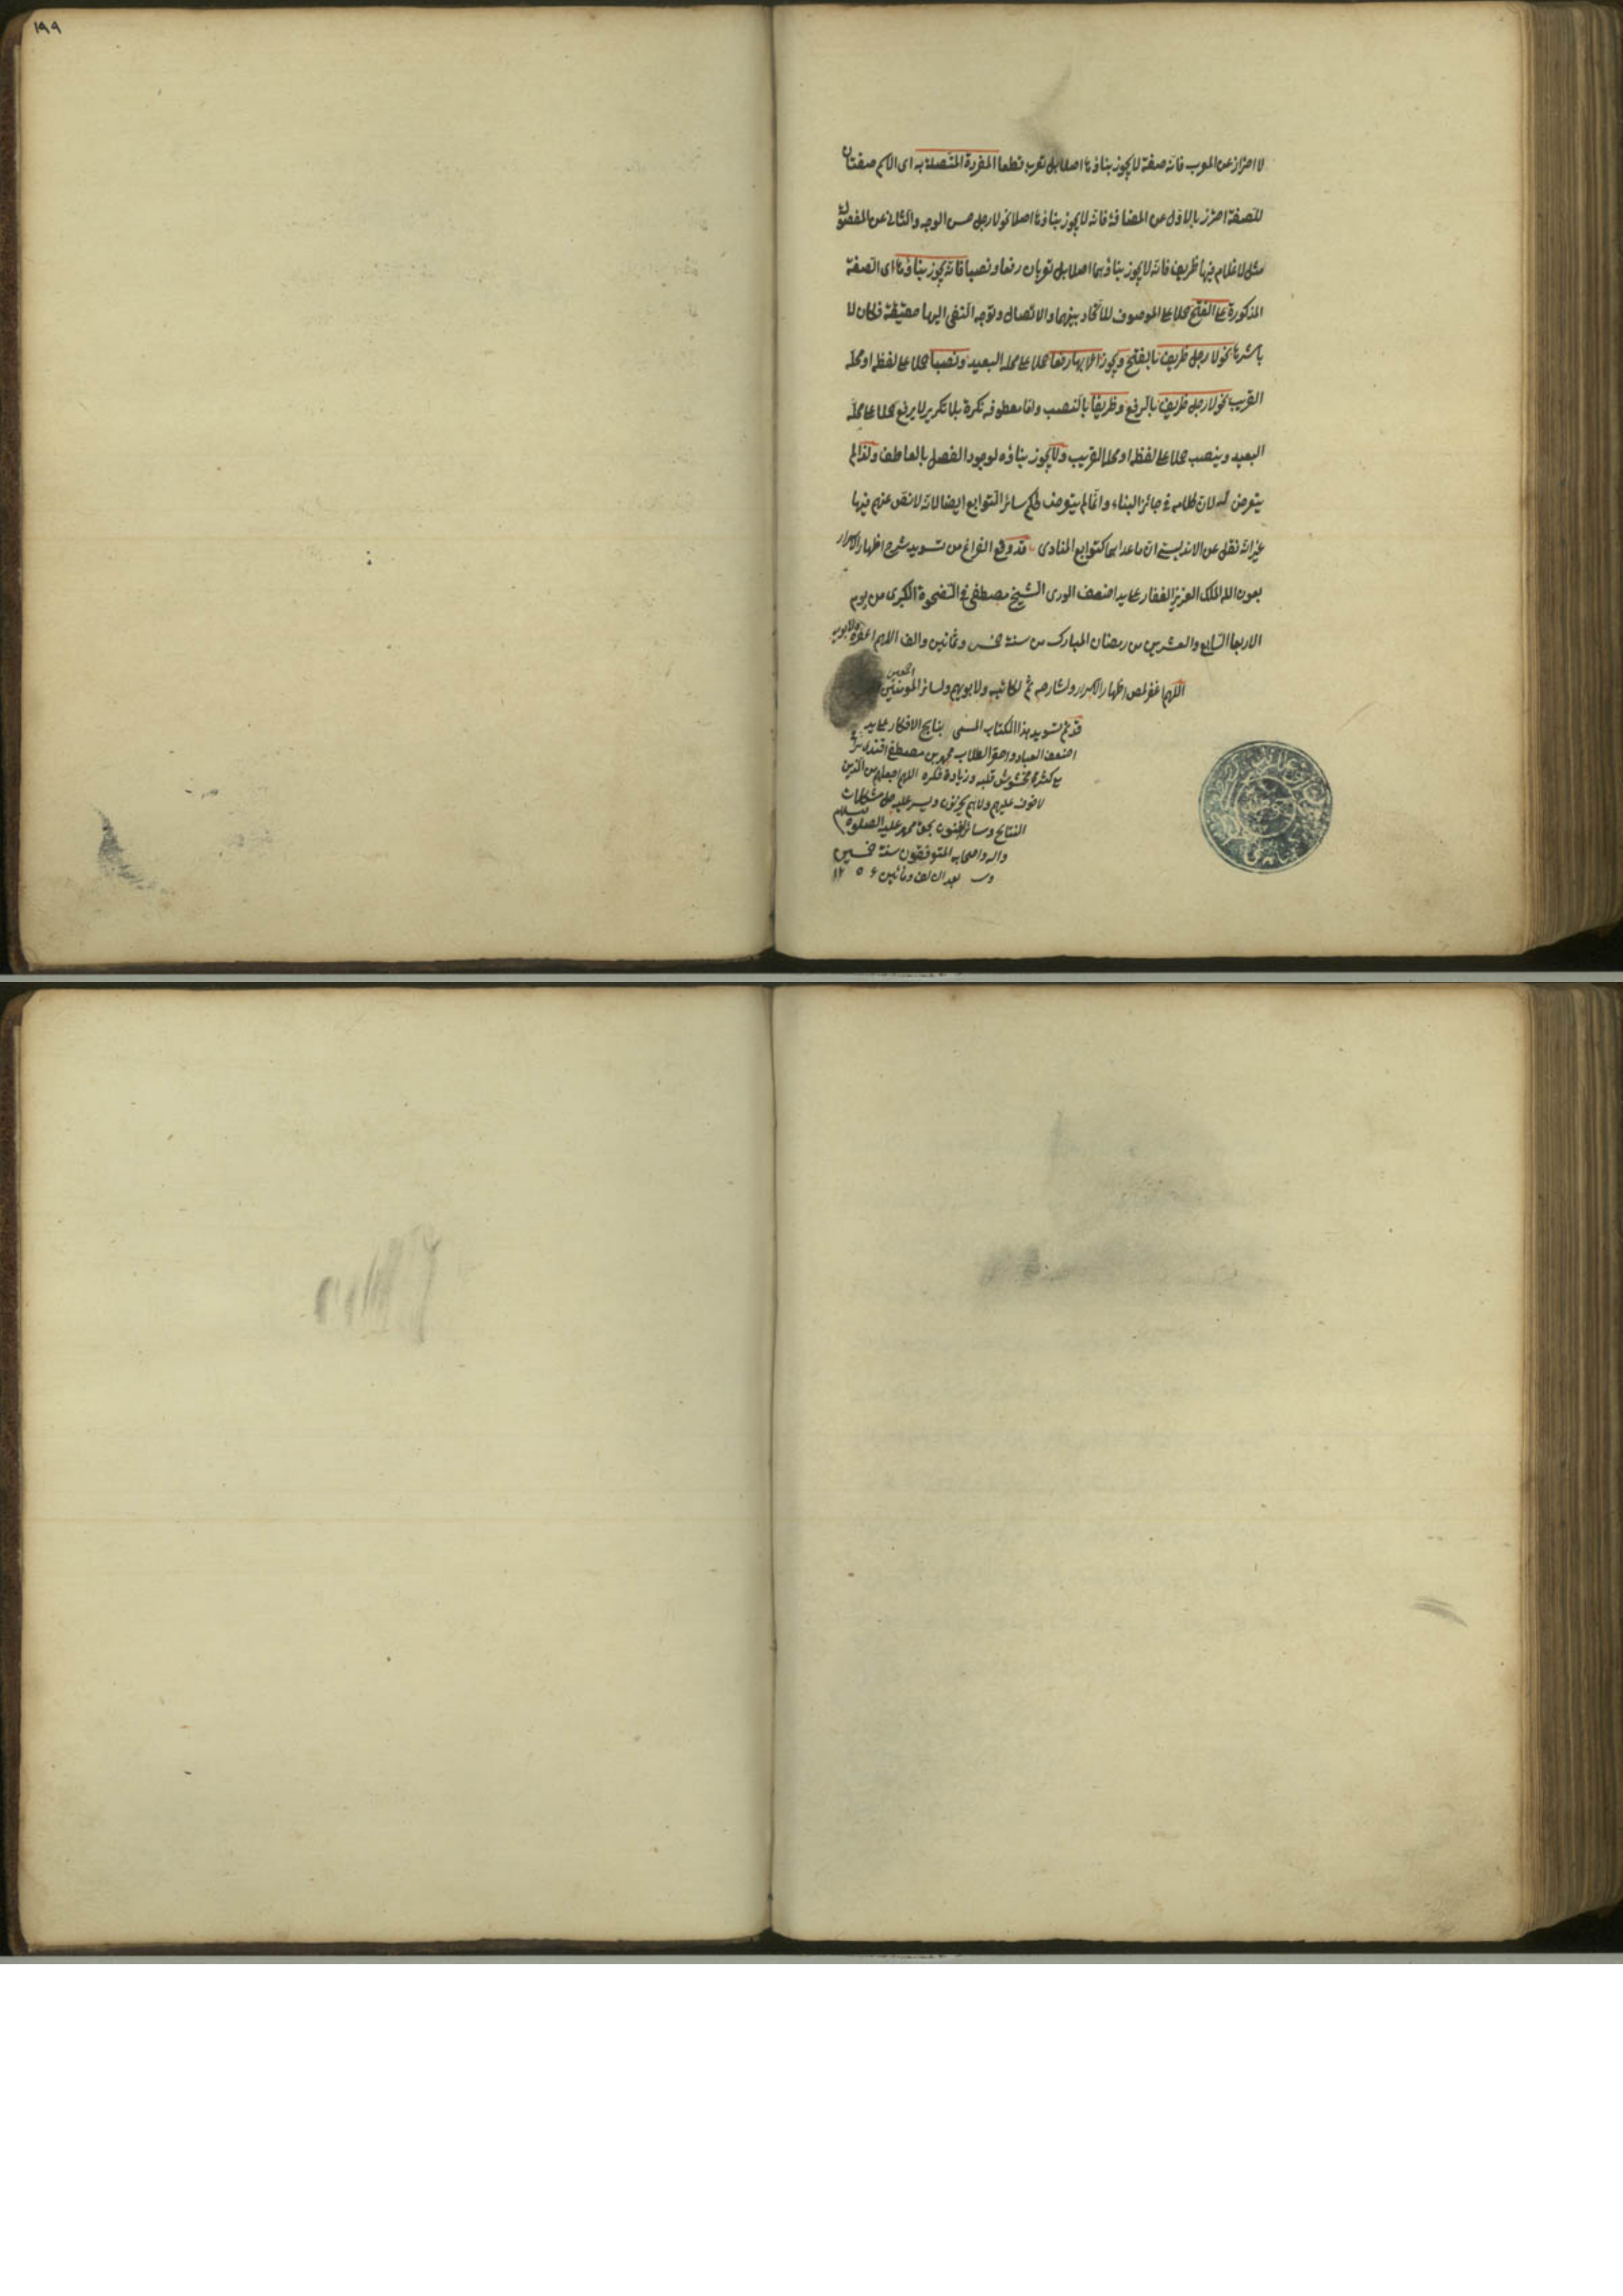 ١٩٩
لا احتراز عن المعرب فانه صفة لا يجوز بناؤها اصلا بل تعرب قطعا المفردة المتصلة به اى الاسم صفتان
للصفة احترز بالاول عن المضافة فانه لا يجوز بناؤها اصلا نحو لا رجل حسن الوجه والثانى عن المفصول
مثل لا غلام فيها ظريف فانه لا يجوز بناؤهما اصلا بل تعربان رفعا ونصبا فانه يجوز بناؤها اى الصفة
المذكورة على الفتح حملا على الموصوف للاتحاد بينهما والاتصال وتوجه النفى اليها حقيقة فكان لا
باشرتها نحو لا رجل ظريف بالفتح ويجوز اعرابها رفعا حملا على محله البعيد ونصبا حملا على لفظه او محله
القريب نحو لا رجل ظريف بالرفع وظريفا بالنصب واما معطوفه نكرة بلا تكرير لا يرفع حملا على محله
البعيد وينصب حملا على لفظه او محله القريب ولا يجوز بناؤه لوجود الفصل بالعاطف ولذا لم
يتعرض له لان كلامه فى جائز البناء وانما لم يتعرض لحكم سائر التوابع ايضا لانه لا نص عنهم فيها
غير انه نقل عن الاندلسى ان ما عداهما كتوابع المنادى قد وقع الفراغ من تسويد شرح اظهار الاسرار
بعون الله الملك العزيز الغفار على يد اضعف الورى الشيخ مصطفى فى الضحوة الكبرى من يوم
الاربعا السابع والعشرين من رمضان المبارك من سنة خمس وثمانين والف اللهم اغفره ولابويه
اللهم اغفر لمص اظهار الاسرار ولشارحه ثم لكاتبه ولابويهم ولسائر المومنين اجمعين
قد تم تسويد هذا الكتاب المسمى بنتايج الافكار على يد
اضعف العباد واحقر الطلاب محمد بن مصطفى افندى
كثرة تشوش قلبه وزيادة فكره اللهم اجعلهم من الذين
لا خوف عليهم ولا هم يحزنون ويسر عليه حل مشكلات
النتايج وسائر الفنون بحق محمد عليه الصلوة والسلام
واله واصحابه المتوفقون سنة خمسين
وست بعد الالف ومائتين ١٢٥٦